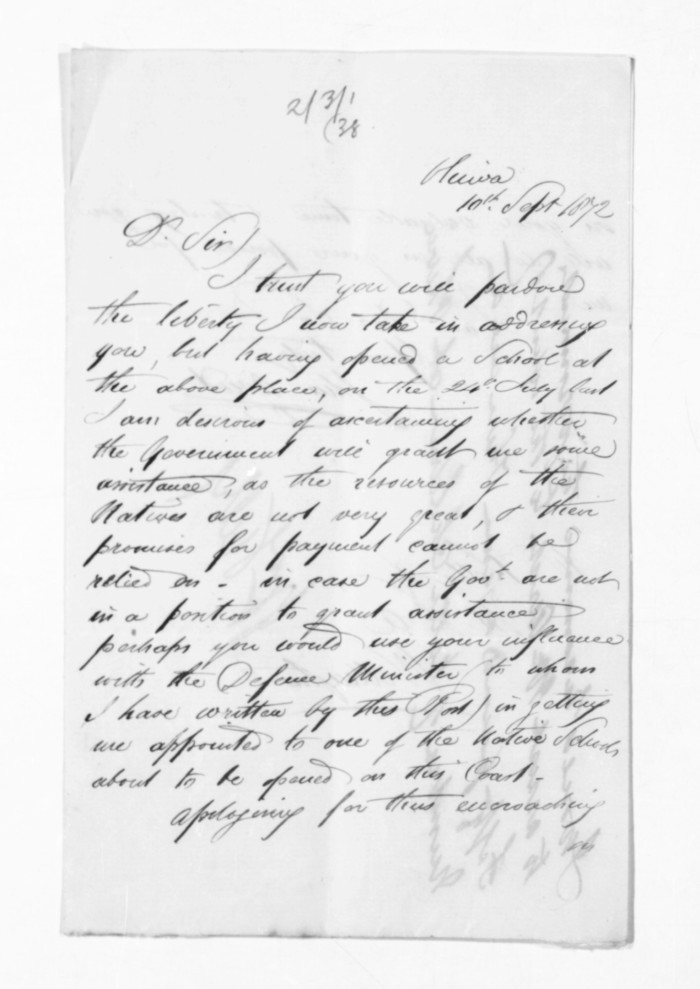 2/3/1
(38
Ohiwa
10th Sept 1872
Dr. Sir)
I trust you will pardon
the liberty I now take in addressing
you, but having opened a School at
the above place, on the 24th July last
I am desirous of ascertaining whether
the Government will grant me some
assistance, as the resources of the
Natives are not very great, & their
promises for payment cannot be
relied on - in case the Govt. are not
in a position to grant assistance
perhaps you would use your influence
with the Defence Minister (to whom
I have written by this Post) in getting
me appointed to one of the Native Schools
about to be opened on this Coast -
Apologising for thus encroaching
on